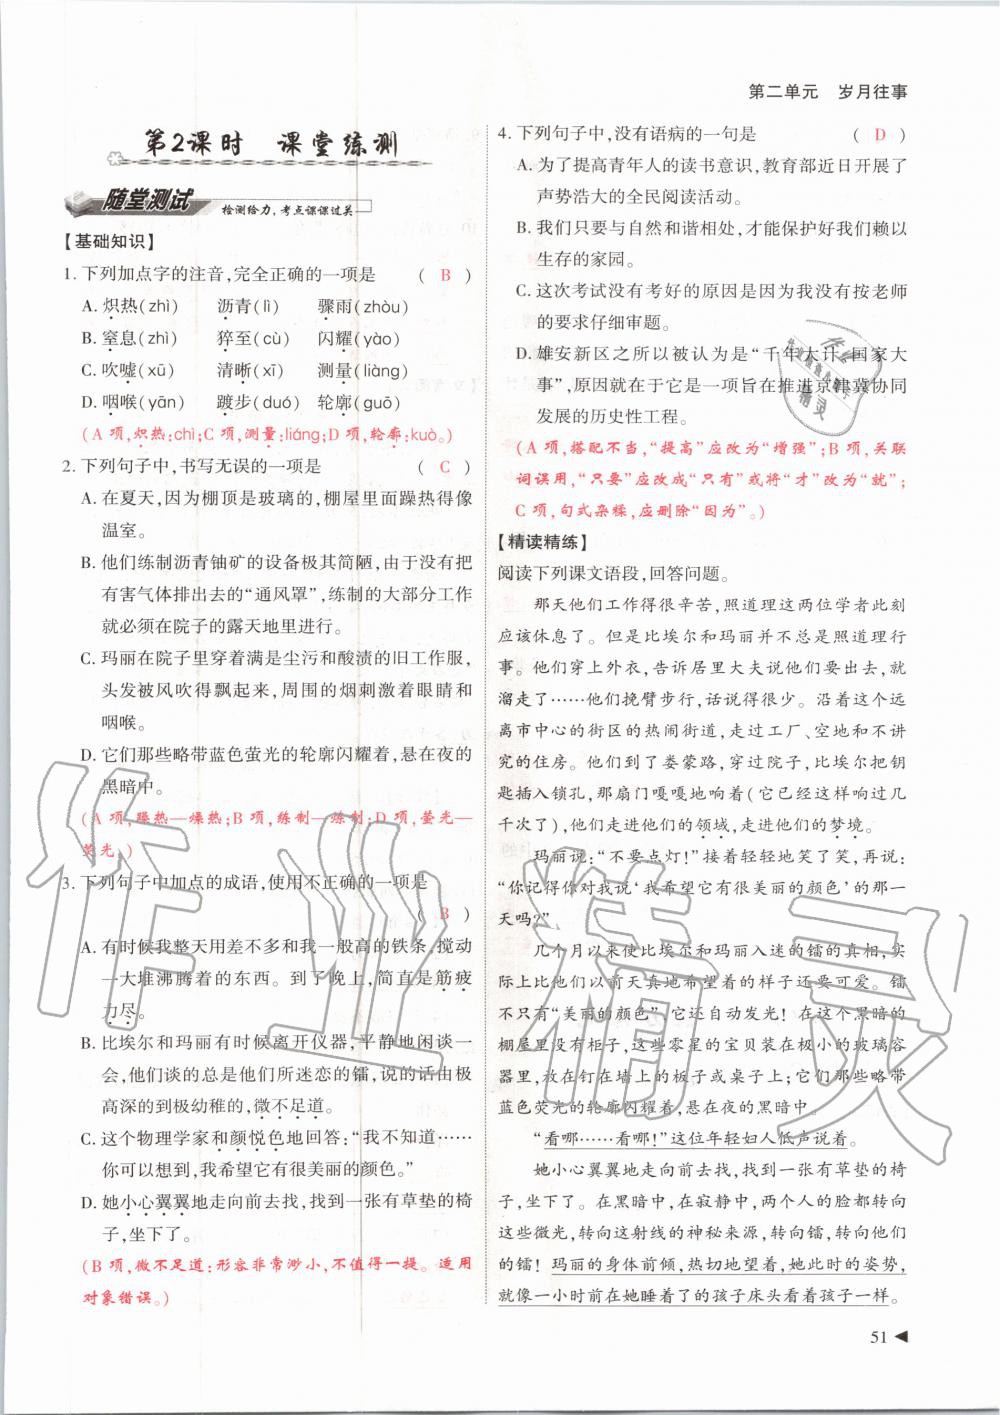 第二单元　岁月往事
第2课时　课堂练测
随堂测试 检测给力,考点课课过关
【基础知识】
1. 下列加点字的注音,完全正确的一项是　( B )
A. 炽热(zhì)　沥青(lì)　骤雨(zhòu)
B. 窒息(zhì)　猝至(cù)　闪耀(yào)
C. 吹嘘(xū)　清晰(xī)　测量(liàng)
D. 咽喉(yān)　踱步(duó)　轮廓(guō)
(A项,炽热:chì;C项,测量:liáng;D项,轮廓:kuò。)
2. 下列句子中,书写无误的一项是　( C )
A. 在夏天,因为棚顶是玻璃的,棚屋里面躁热得像
温室。
B. 他们练制沥青铀矿的设备极其简陋,由于没有把
有害气体排出去的“通风罩”,练制的大部分工作
就必须在院子的露天地里进行。
C. 玛丽在院子里穿着满是尘污和酸渍的旧工作服,
头发被风吹得飘起来,周围的烟刺激着眼睛和
咽喉。
D. 它们那些略带蓝色萤光的轮廓闪耀着,悬在夜的
黑暗中。
(A项,躁热—燥热;B项,练制—炼制;D项,萤光—
荧光。)
3. 下列句子中加点的成语,使用不正确的一项是
( B )
A. 有时候我整天用差不多和我一般高的铁条,搅动
一大堆沸腾着的东西。到了晚上,简直是筋疲
力尽。
B. 比埃尔和玛丽有时候离开仪器,平静地闲谈一
会,他们谈的总是他们所迷恋的镭,说的话由极
高深的到极幼稚的,微不足道。
C. 这个物理学家和颜悦色地回答:“我不知道……
你可以想到,我希望它有很美丽的颜色。”
D. 她小心翼翼地走向前去找,找到一张有草垫的椅
子,坐下了。
(B项,微不足道:形容非常渺小,不值得一提。适用
对象错误。)
4. 下列句子中,没有语病的一句是　( D )
A. 为了提高青年人的读书意识,教育部近日开展了
声势浩大的全民阅读活动。
B. 我们只要与自然和谐相处,才能保护好我们赖以
生存的家园。
C. 这次考试没有考好的原因是因为我没有按老师
的要求仔细审题。
D. 雄安新区之所以被认为是“千年大计、国家大
事”,原因就在于它是一项旨在推进京津冀协同
发展的历史性工程。
(A项,搭配不当,“提高”应改为“增强”;B项,关联
词误用,“只要”应改成“只有”或将“才”改为“就”;
C项,句式杂糅,应删除“因为”。)
【精读精练】
阅读下列课文语段,回答问题。
那天他们工作得很辛苦,照道理这两位学者此刻
应该休息了。但是比埃尔和玛丽并不总是照道理行
事。他们穿上外衣,告诉居里大夫说他们要出去,就
溜走了……他们挽臂步行,话说得很少。沿着这个远
离市中心的街区的热闹街道,走过工厂、空地和不讲
究的住房。他们到了娄蒙路,穿过院子,比埃尔把钥
匙插入锁孔,那扇门嘎嘎地响着(它已经这样响过几
千次了),他们走进他们的领域,走进他们的梦境。
玛丽说:“不要点灯!”接着轻轻地笑了笑,再说:
“你记得你对我说‘我希望它有很美丽的颜色’的那一
天吗?”
几个月以来使比埃尔和玛丽入迷的镭的真相,实
际上比他们以前天真地希望着的样子还要可爱。镭
不只有“美丽的颜色”,它还自动发光!在这个黑暗的
棚屋里没有柜子,这些零星的宝贝装在极小的玻璃容
器里,放在钉在墙上的板子或桌子上;它们那些略带
蓝色荧光的轮廓闪耀着,悬在夜的黑暗中。
“看哪……看哪!”这位年轻妇人低声说着。
她小心翼翼地走向前去找,找到一张有草垫的椅
子,坐下了。在黑暗中,在寂静中,两个人的脸都转向
这些微光,转向这射线的神秘来源,转向镭,转向他们
的镭!玛丽的身体前倾,热切地望着,她此时的姿势,
就像一小时前在她睡着了的孩子床头看着孩子一样。
51
作业精灵